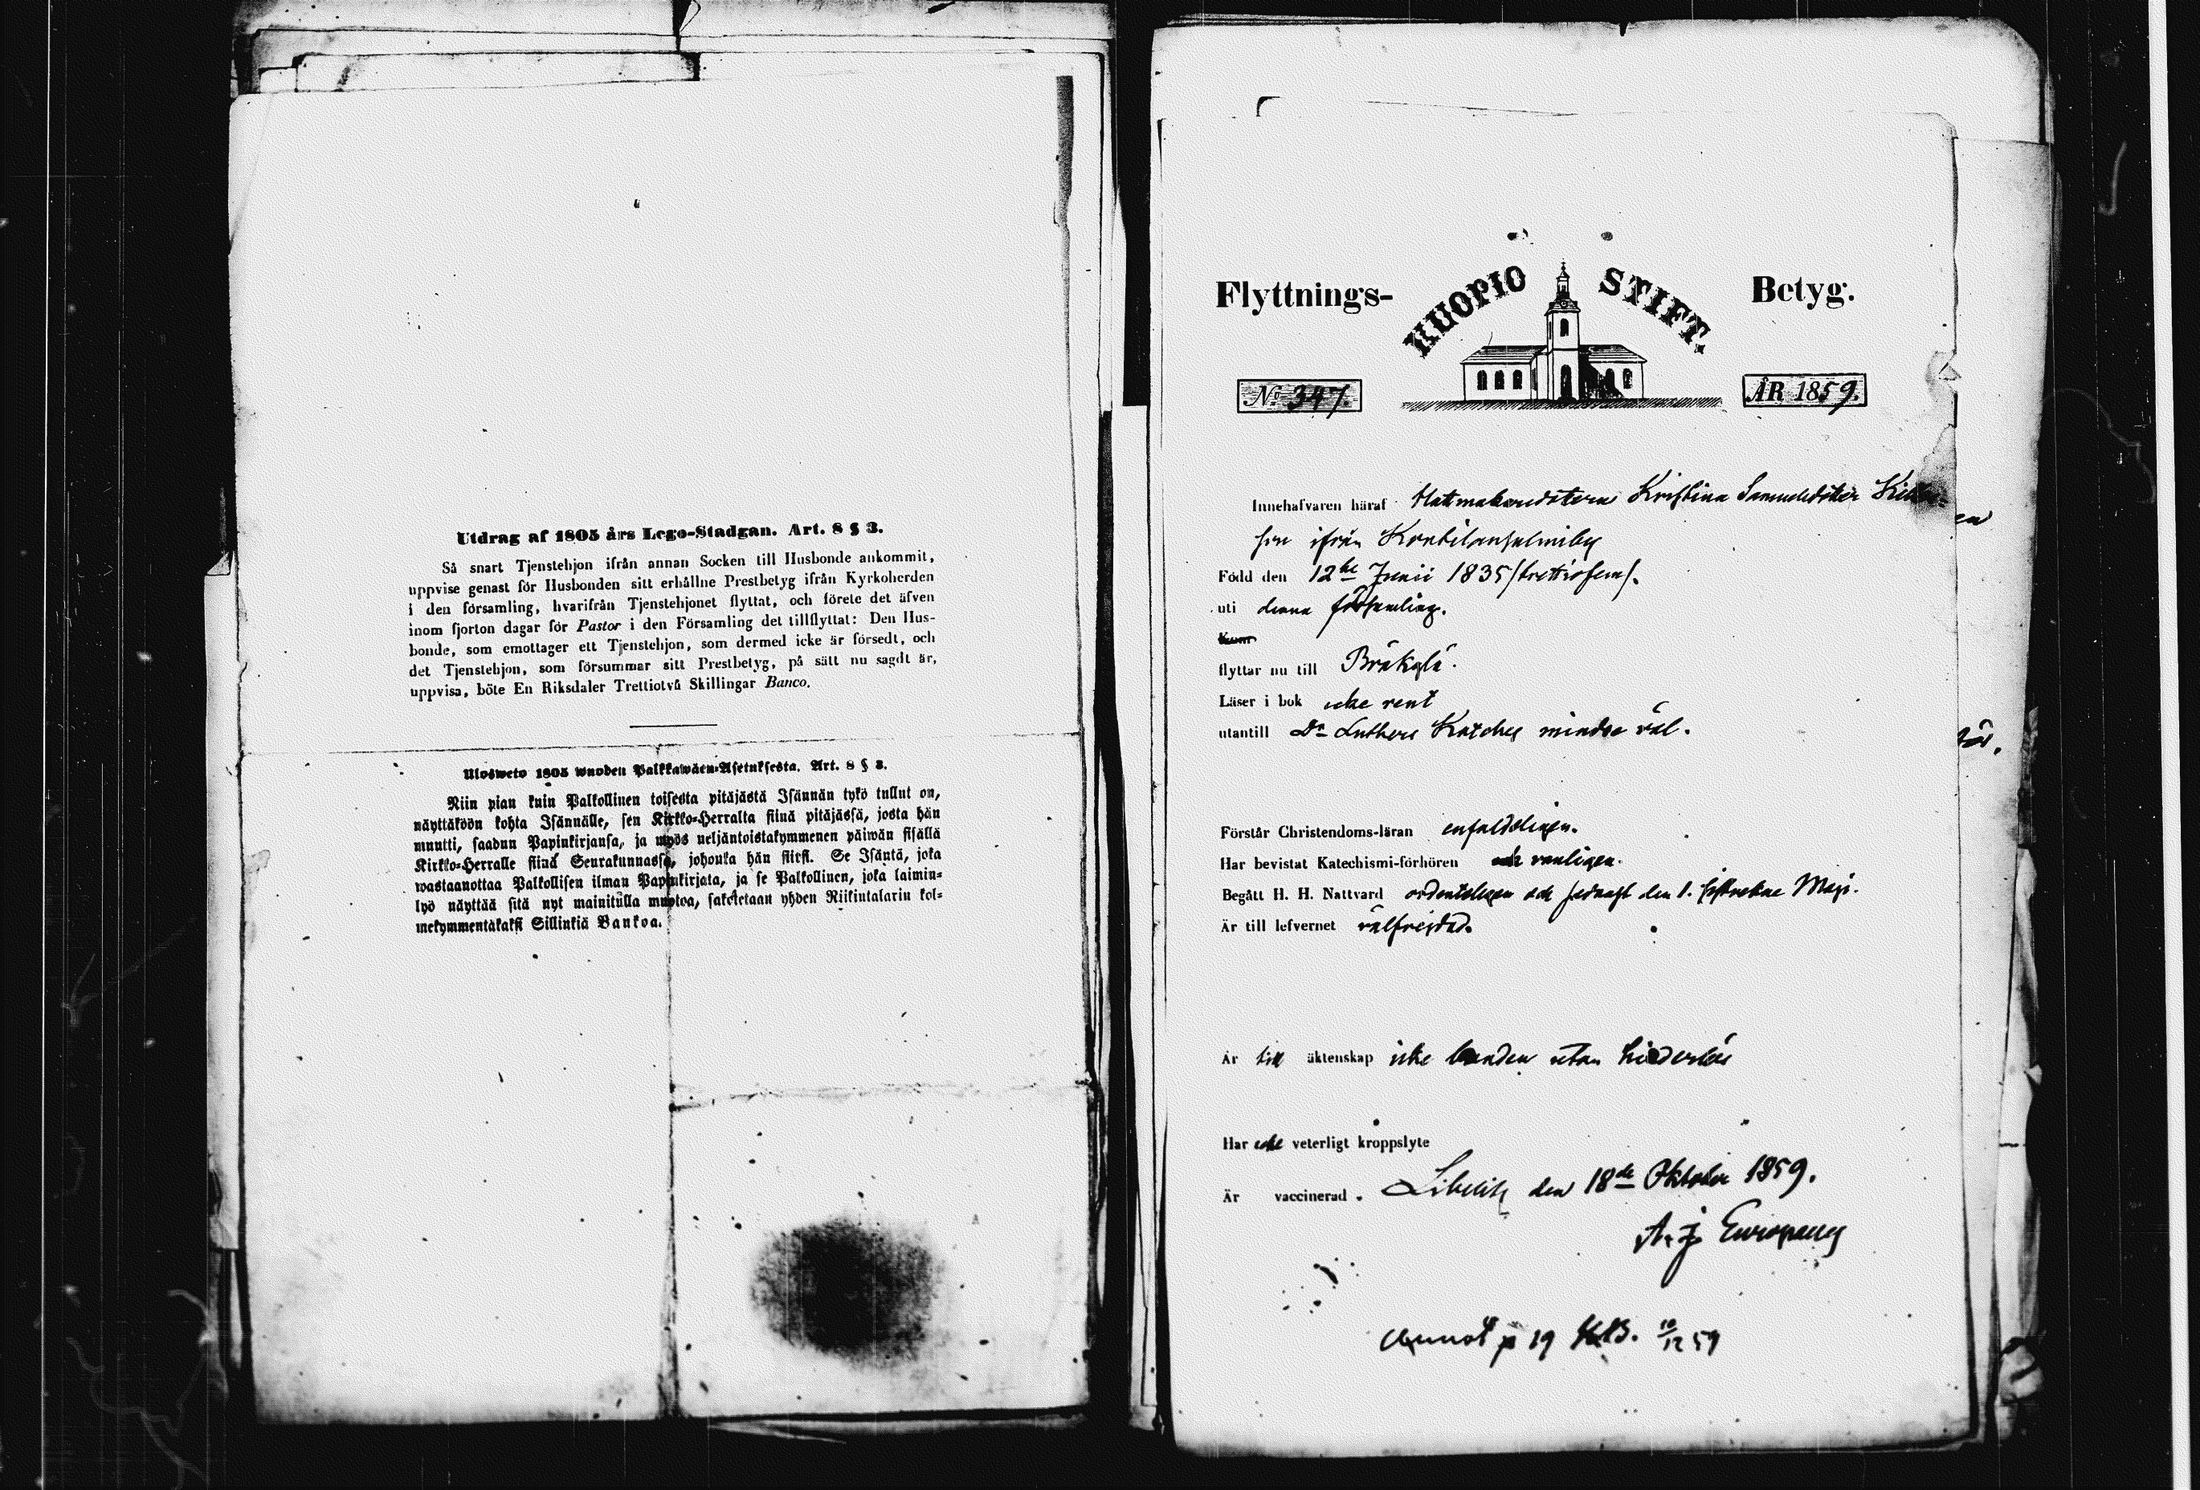 Utdrag af 1805 års Lego-Stadgan. Art. 8 § 3.
Så snart Tjenstehjon ifrån annan Socken till Husbonde ankommit,
uppvise genast för Husbonden sitt erhållne Prestbetyg ifrån Kyrkoherden
i den församling, hvarifrån Tjenstehjonet flyttat, och förete det äfven
inom fjorton dagar för Pastor i den Församling det tillflyttat: Den Hus-
bonde, som emottager ett Tjenstehjon, som dermed icke är försedt, och
det Tjenstehjon, som försummar sitt Prestbetyg, på sätt nu sagdt är,
uppvisa, böte En Riksdaler Trettiotvå Skillingar Banco.
Ulosweto 1805 wuoden Palkkawäen-Asetuksesta. Art. 8 § 3.
Niin pian kuin Palkollinen toisesta pitäjästä Isännän tykö tullut on,
näyttäköön kohta Isännälle, sen Kirkko-Herralta siinä pitäjässä, josta hän
muutti, saadun Papinkirjansa, ja myös neljäntoistakymmenen päiwän sisällä
Kirkko-Herralle siinä Seurakunnassa, johonka hän siirsi. Se Isäntä, joka
wastaanottaa Palkollisen ilman Papinkirjata, ja se Palkollinen, joka laimin-
lyö näyttää sitä nyt mainitulla muotoa, sakotetaan yhden Riikintalarin kol-
mekymmentäkaksi Sillinkiä Bankoa.
Flyttnings- KUOPIO STIFT. Betyg.
No 347. ÅR 1859.
Innehafvaren häraf Kristina Samuelsdotter
ifrån
Född den 12te Junii 1835 /trettiofem/.
uti denna församling.
flyttar nu till Bräkylä.
Läser i bok icke rent
utantill Dr Luthers Katches mindre väl.
Förstår Christendoms-läran enfaldeligen.
Har bevistat Katechismi-förhören vanligen.
Begått H. H. Nattvard ordenteligen och sednast den 1. sistvekne Maji.
Är till lefvernet välfrejdad.
Är till äktenskap icke bunden utan hinderlös
Har icke veterligt kroppslyte
Är vaccinerad. Libelitz den 18de Oktober 1859.
A. J. Europaeus
Annot p 19 KB. 10/12 59